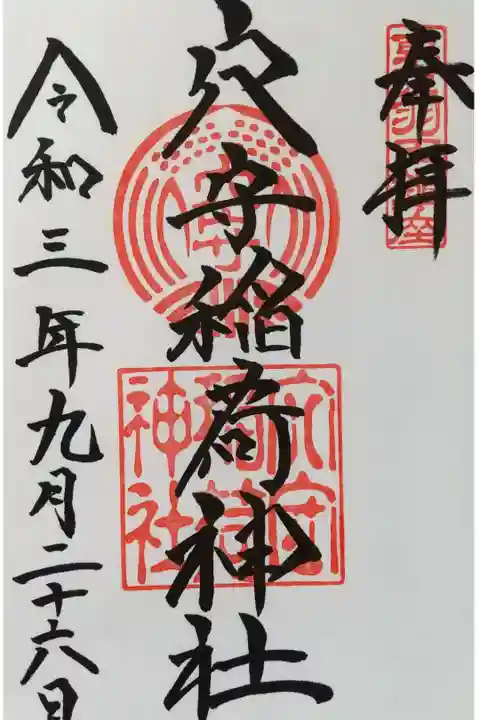 奉拝
穴守稲荷神社
令和三年九月二十六日
穴守
稲荷
神社